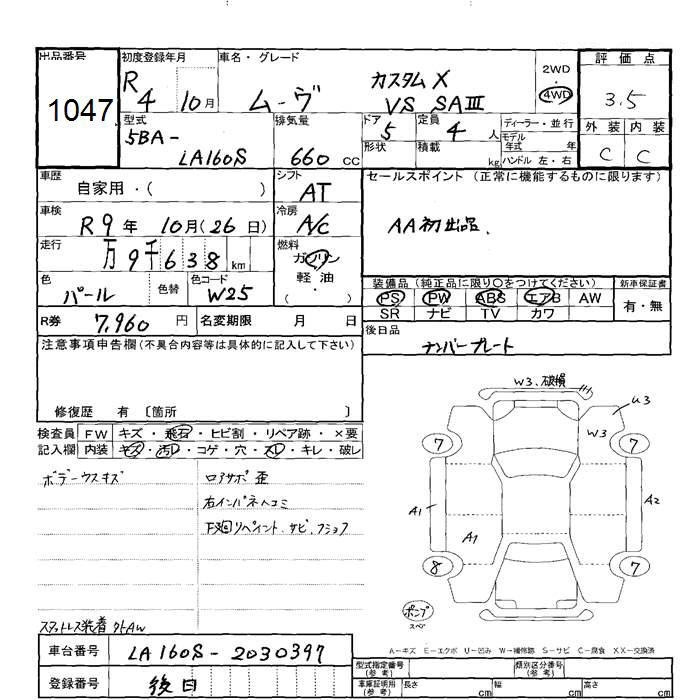 出品番号
1047
初度登録年月
R 4 10月
車名・グレード
ムーヴ カスタム X
VS SAⅢ
2WD
4WD
評価点
3.5
外装 内装
C C
型式
5BA-
LA160S
排気量
660 cc
ドア 5
形状
定員 4 人
積載 kg
ディーラー・並行
モデル年式 年
ハンドル 左・右
車歴
自家用・( )
シフト
AT
車検
R9年 10月(26日)
冷房
A/C
走行
万9千638 km
燃料
ガソリン
軽油
( ・ )
色
パール
色替
色コード
W25
R券 7,960 円
名変期限 月 日
セールスポイント(正常に機能するものに限ります)
AA初出品、
装備品(純正品に限り○をつけてください)
PS PW ABS エアB AW
SR ナビ TV カワ
新車保証書
有・無
後日品
ナンバープレート
注意事項申告欄(不具合内容等は具体的に記入して下さい)
修復歴 有〔箇所 〕
検査員 FW キズ・飛石・ヒビ割・リペア跡・×要
記入欄 内装 キズ・汚レ・コゲ・穴・スレ・キレ・破レ
ボデーウスキズ
ロアサポ歪
右インパネヘコミ
下廻リペイント、サビ、フショク
スタットレス装着 外AW
W3、破損
U3
W3
7 7
A1 A2
A1
8 7
ポンプ
スペア
A-キズ E-エクボ U-凹み W-補修跡 S-サビ C-腐食 XX-交換済
車台番号 LA160S-2030397
登録番号 後日
型式指定番号(参考)
類別区分番号(参考)
車庫証明用(参考) 長さ cm 幅 cm 高さ cm